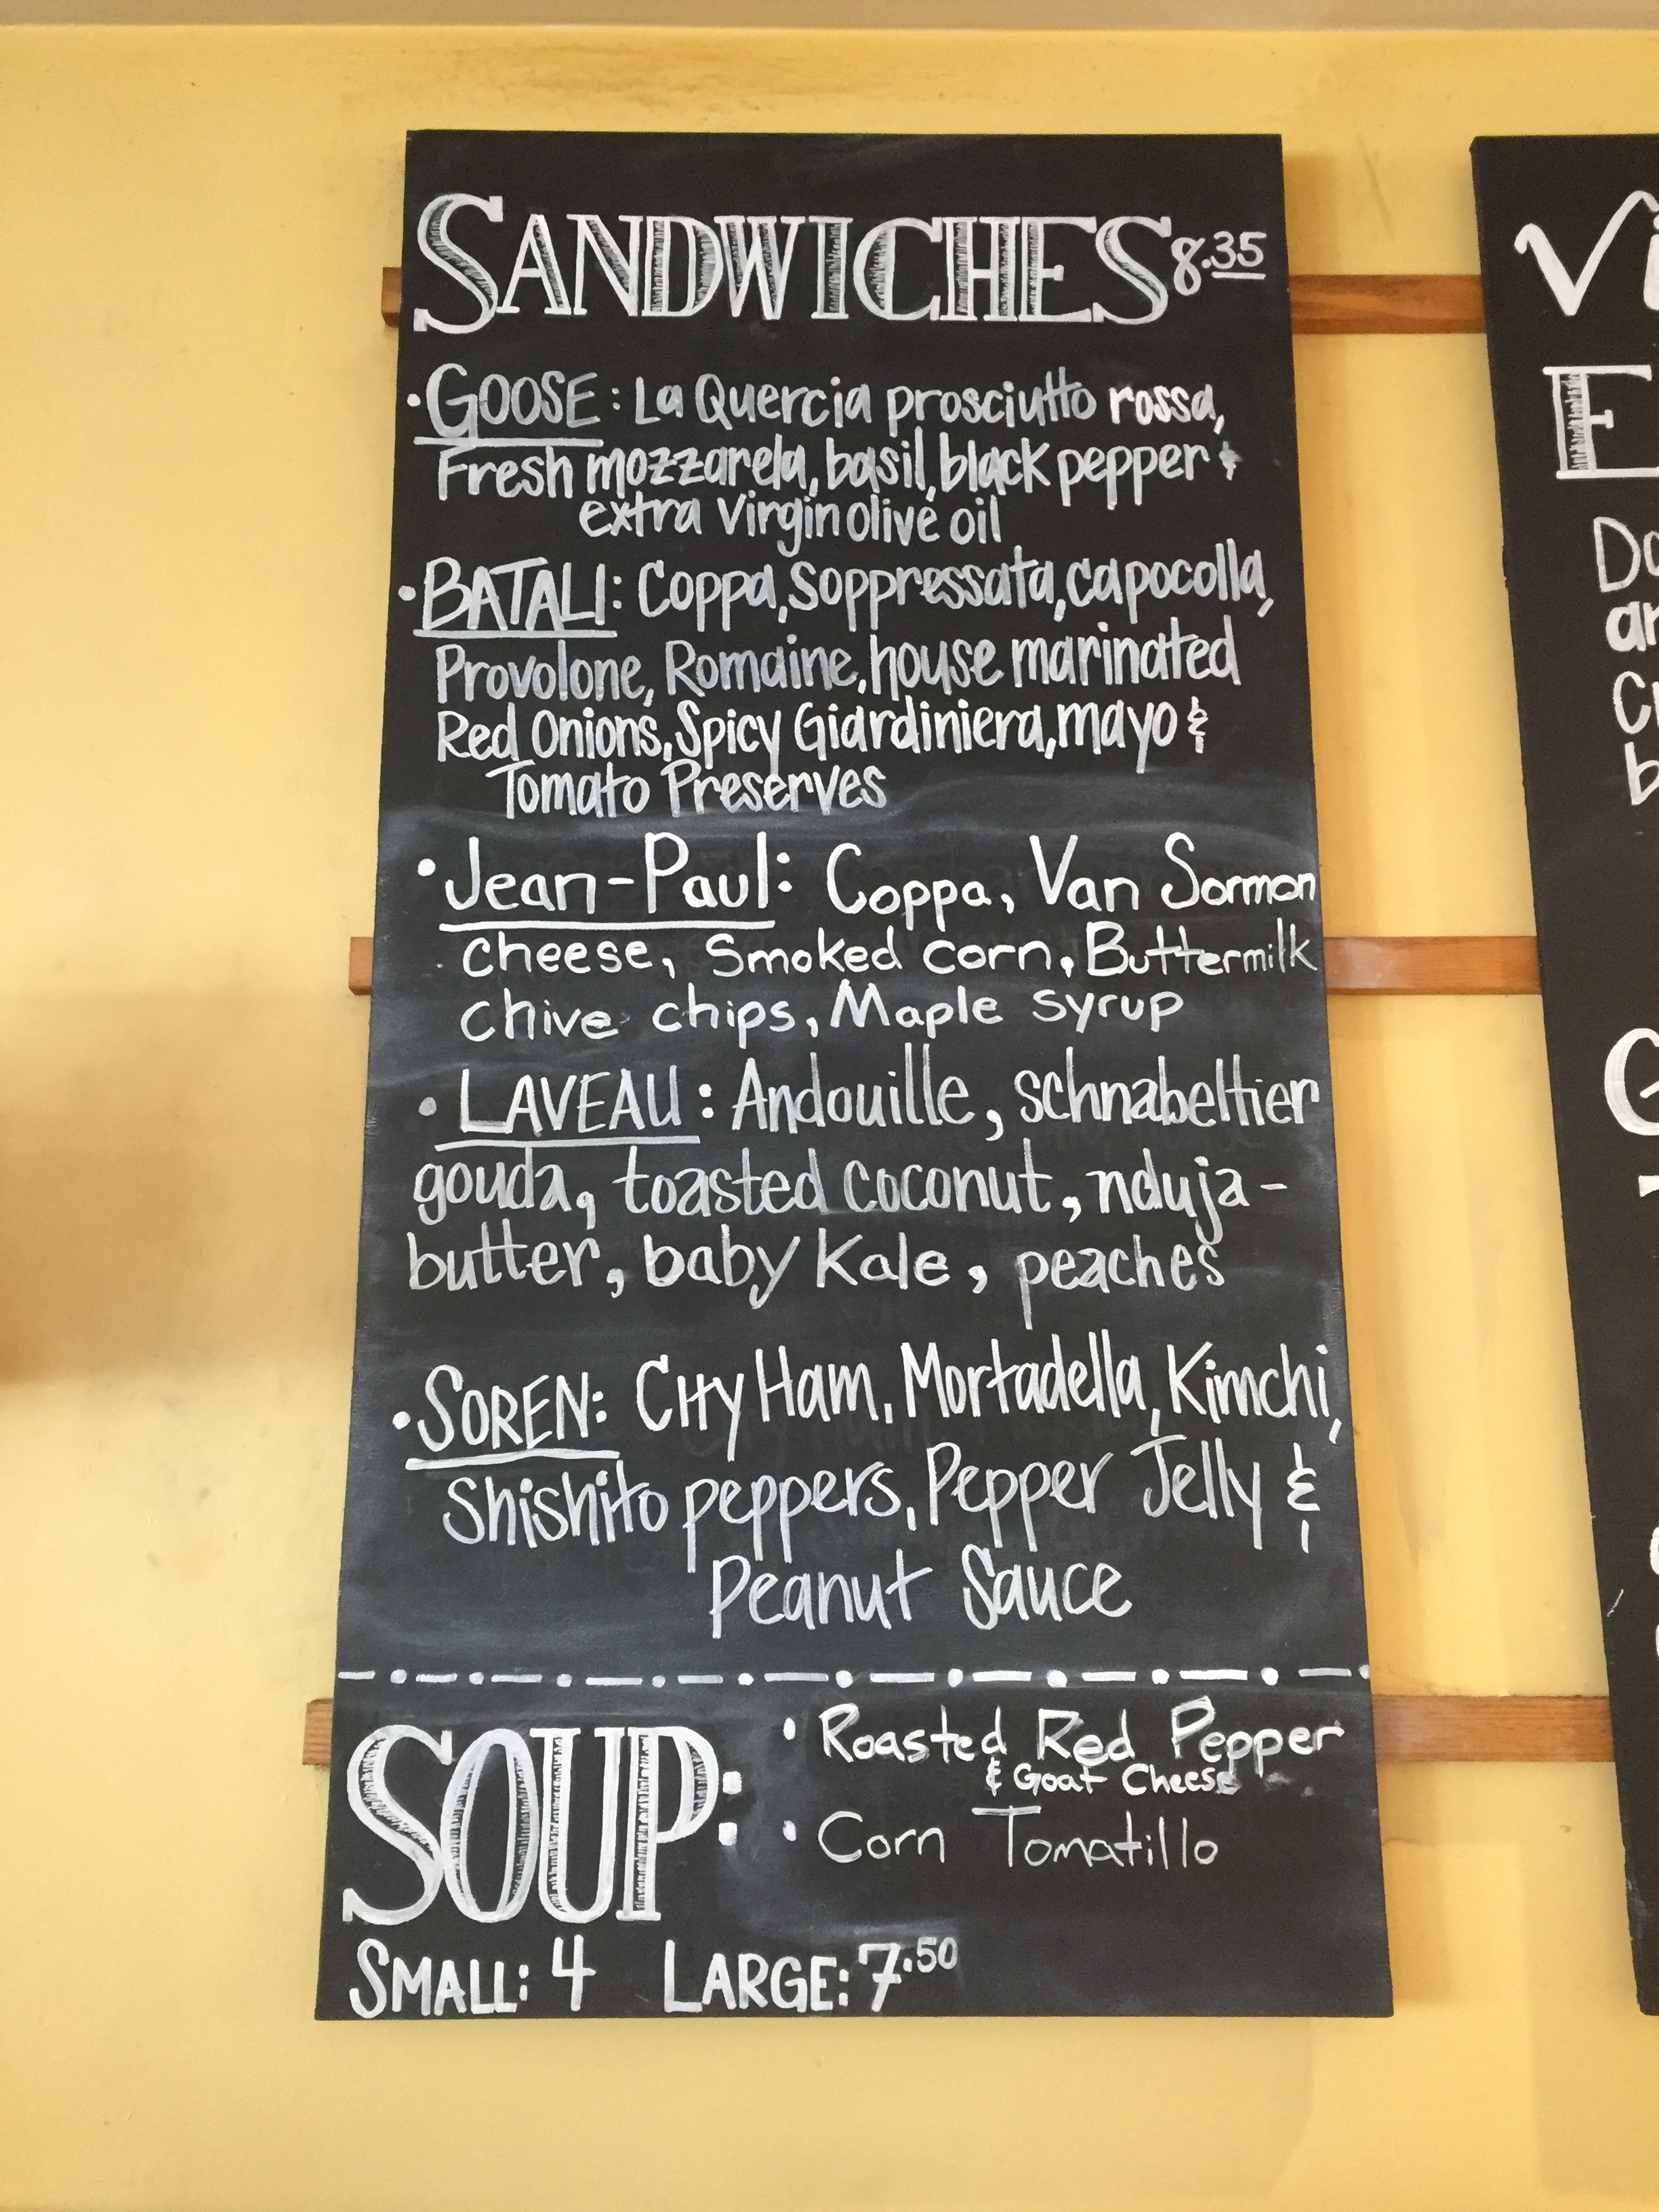 SANDWICHES 8.35
• GOOSE: La Quercia prosciutto rossa,
Fresh mozzarela, basil, black pepper &
extra Virgin olive oil
• BATALI: Coppa, Soppressata, capocolla,
Provolone, Romaine, house marinated
Red Onions, Spicy Giardiniera, mayo &
Tomato Preserves
• Jean-Paul: Coppa, Van Sormon
cheese, Smoked corn, Buttermilk
chive chips, Maple syrup
• LAVEAU: Andouille, schnabeltier
gouda, toasted coconut, nduja-
butter, baby Kale, peaches
• SOREN: City Ham, Mortadella, Kimchi,
Shishito peppers, Pepper Jelly &
Peanut Sauce
SOUP: • Roasted Red Pepper
& Goat Cheese
• Corn Tomatillo
SMALL: 4 LARGE: 7.50